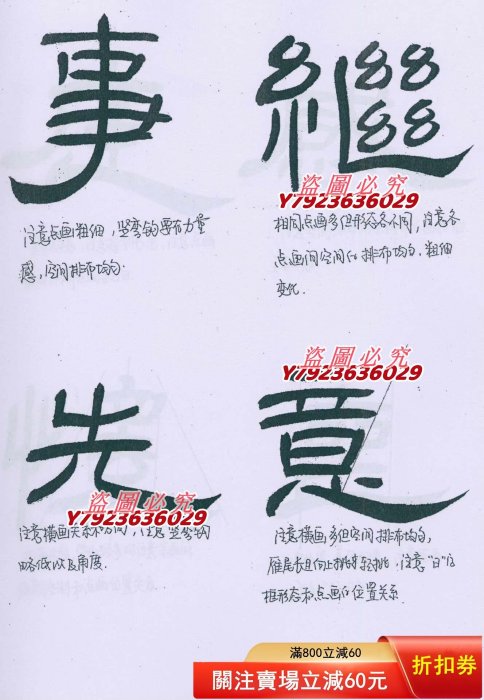 事
繼
盜圖必究
Y7923636029
注意点画粗细，竖弯钩要有力量
感，空间排布均匀.
相同点画多但形态各不同，注意各
点画间空间的排布均匀.粗细
变化.
先
意
盜圖必究
Y7923636029
盜圖必究
Y7923636029
注意横画关系不同，注意竖弯钩
略低以及角度.
注意横画多但空间排布均匀，
雁尾长且向上挑时轻挑，注意“日”的
框形态和点画的位置关系.
滿800立減60
關注賣場立減60元
折扣券